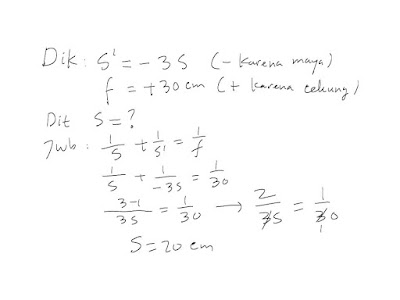 Dik : s' = - 3s (- karena maya)
f = +30 cm (+ karena cekung)
Dit s = ?
Jwb : 1/s + 1/s' = 1/f
1/s + 1/-3s = 1/30
3-1/3s = 1/30 → 2/3s = 1/30 1
s = 20 cm